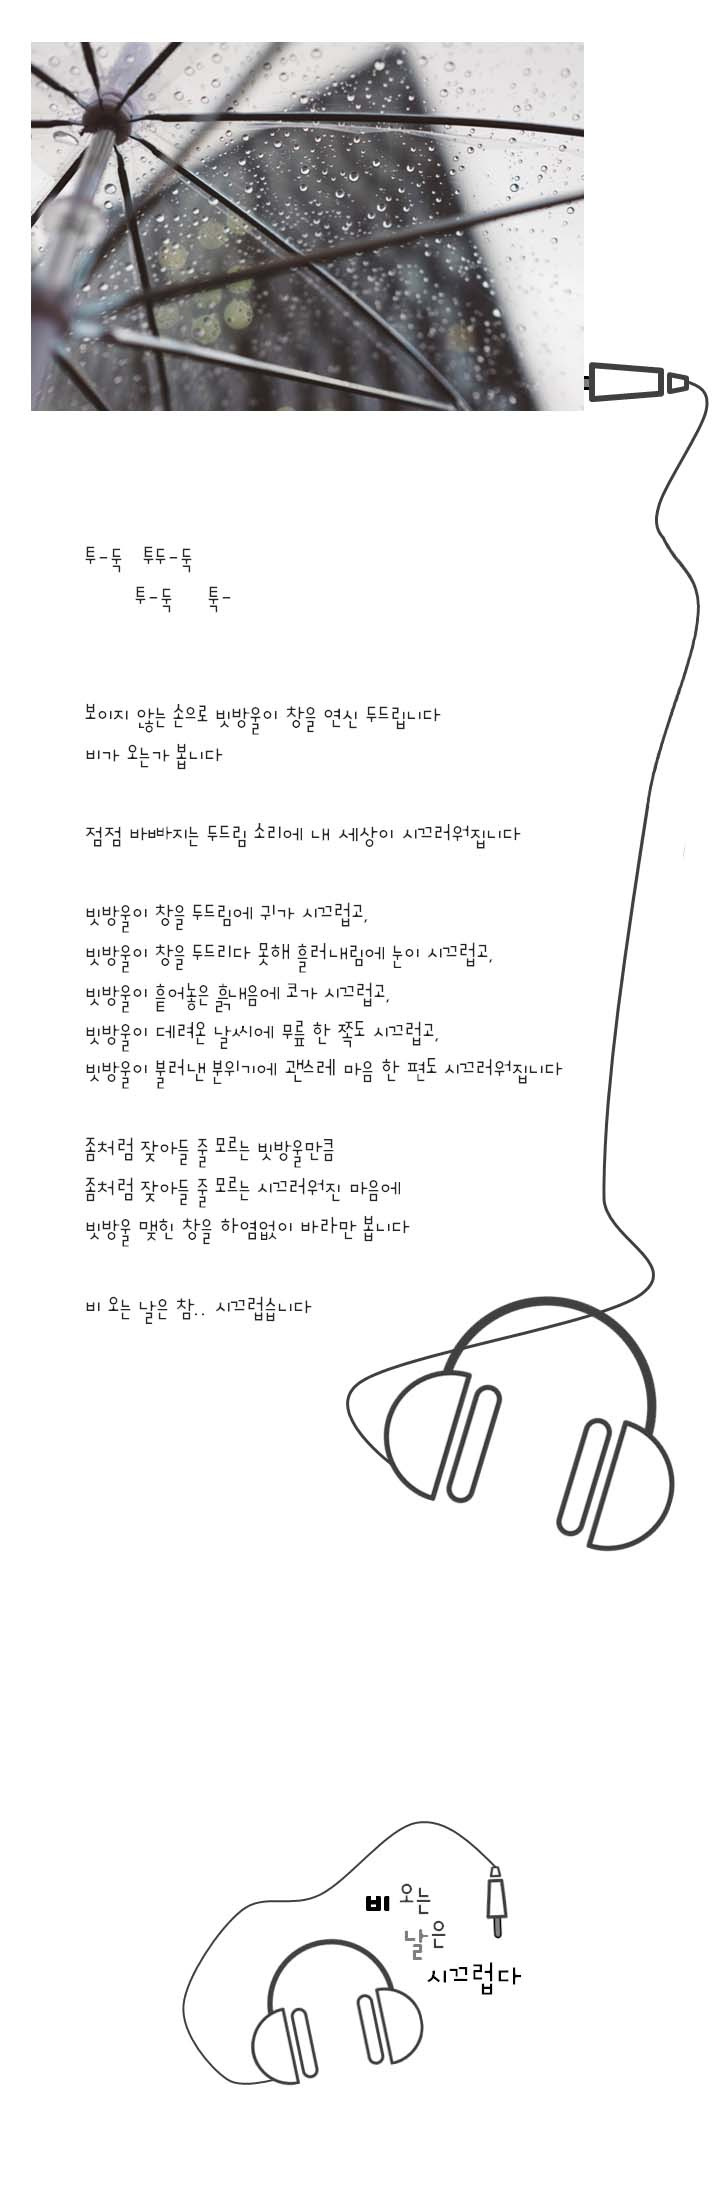 투-둑 투두-둑
투-둑 툭-
보이지 않는 손으로 빗방울이 창을 연신 두드립니다
비가 오는가 봅니다
점점 바빠지는 두드림 소리에 내 세상이 시끄러워집니다
빗방울이 창을 두드림에 귀가 시끄럽고,
빗방울이 창을 두드리다 못해 흘러내림에 눈이 시끄럽고,
빗방울이 흩어놓은 흙내음에 코가 시끄럽고,
빗방울이 데려온 날씨에 무릎 한 쪽도 시끄럽고,
빗방울이 불러낸 분위기에 괜스레 마음 한 편도 시끄러워집니다
좀처럼 잦아들 줄 모르는 빗방울만큼
좀처럼 잦아들 줄 모르는 시끄러워진 마음에
빗방울 맺힌 창을 하염없이 바라만 봅니다
비 오는 날은 참.. 시끄럽습니다
비 오는
날은
시끄럽다